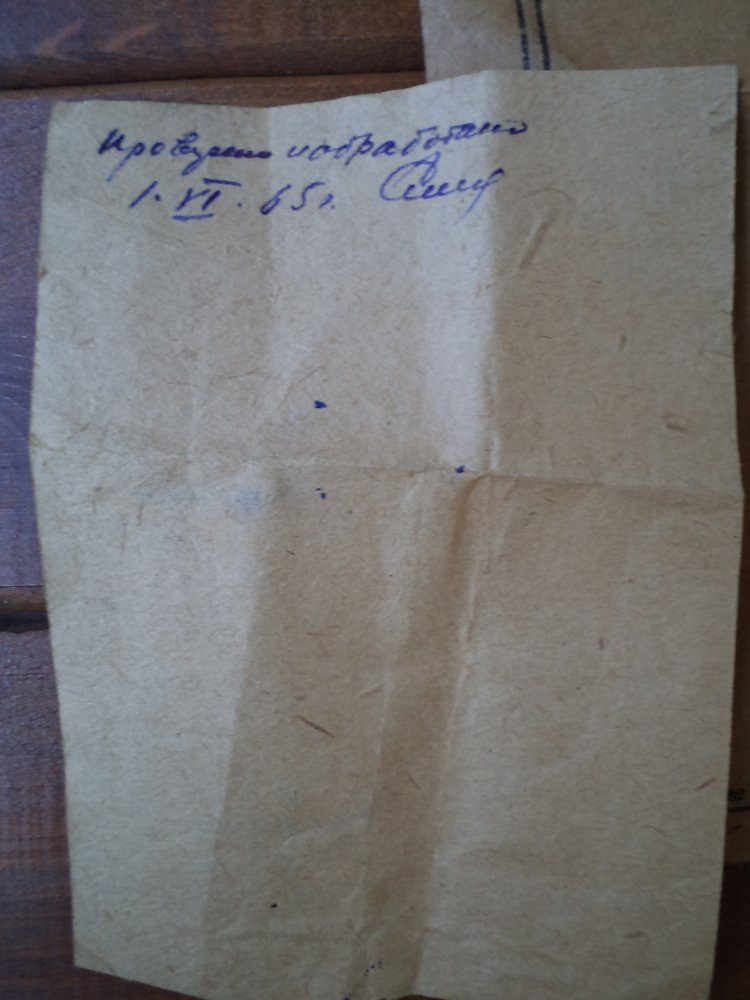 Проверено и обработано
1. VI. 65 г.